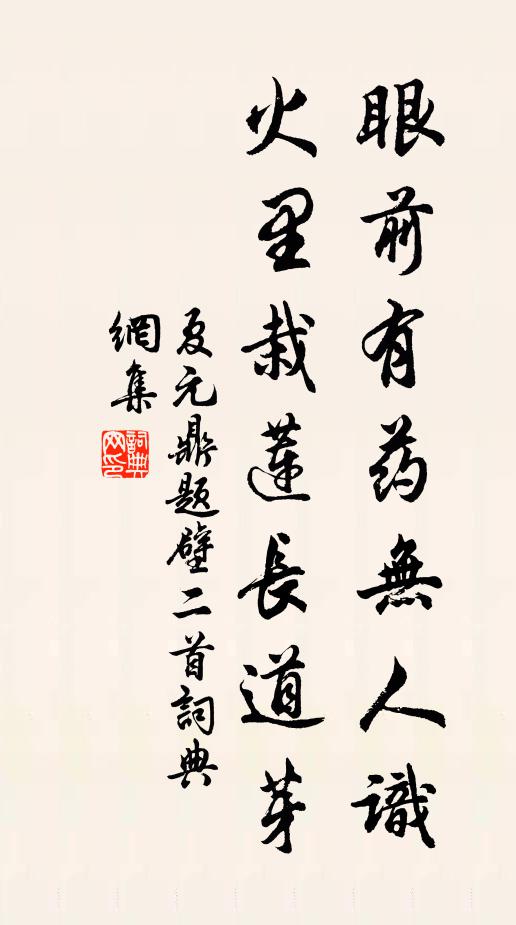 眼前有药無人識
火里栽蓮長道芽
夏元鼎题壁二首詞典
網集
詞典網印